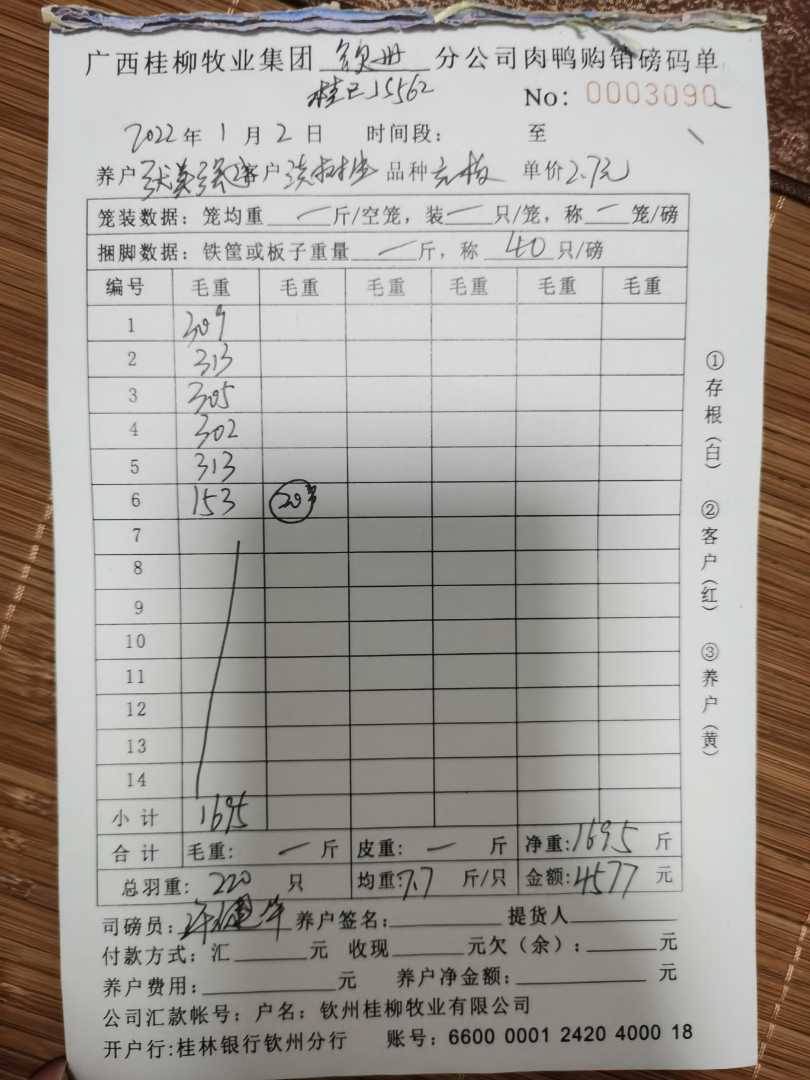 广西桂柳牧业集团 钦州 分公司肉鸭购销磅码单
桂 J5562
No: 0003090
2022年1月2日 时间段: 至
养户 客户 品种 单价2.7元
笼装数据:笼均重 一 斤/空笼,装 一 只/笼,称 一 笼/磅
捆脚数据:铁筐或板子重量 一 斤,称 40 只/磅
编号 毛重 毛重 毛重 毛重 毛重 毛重
1 309
2 313
3 305
4 302
5 313
6 153 20只
7
8
9
10
11
12
13
14
小计 1695
合计 毛重: 一 斤 皮重: 一 斤 净重:1695 斤
总羽重: 220 只 均重:7.7 斤/只 金额:4577 元
司磅员: 养户签名: 提货人
付款方式:汇 元 收现 元欠(余): 元
养户费用: 元 养户净金额: 元
公司汇款帐号:户名:钦州桂柳牧业有限公司
开户行:桂林银行钦州分行 账号:6600 0001 2420 4000 18
①存根(白) ②客户(红) ③养户(黄)